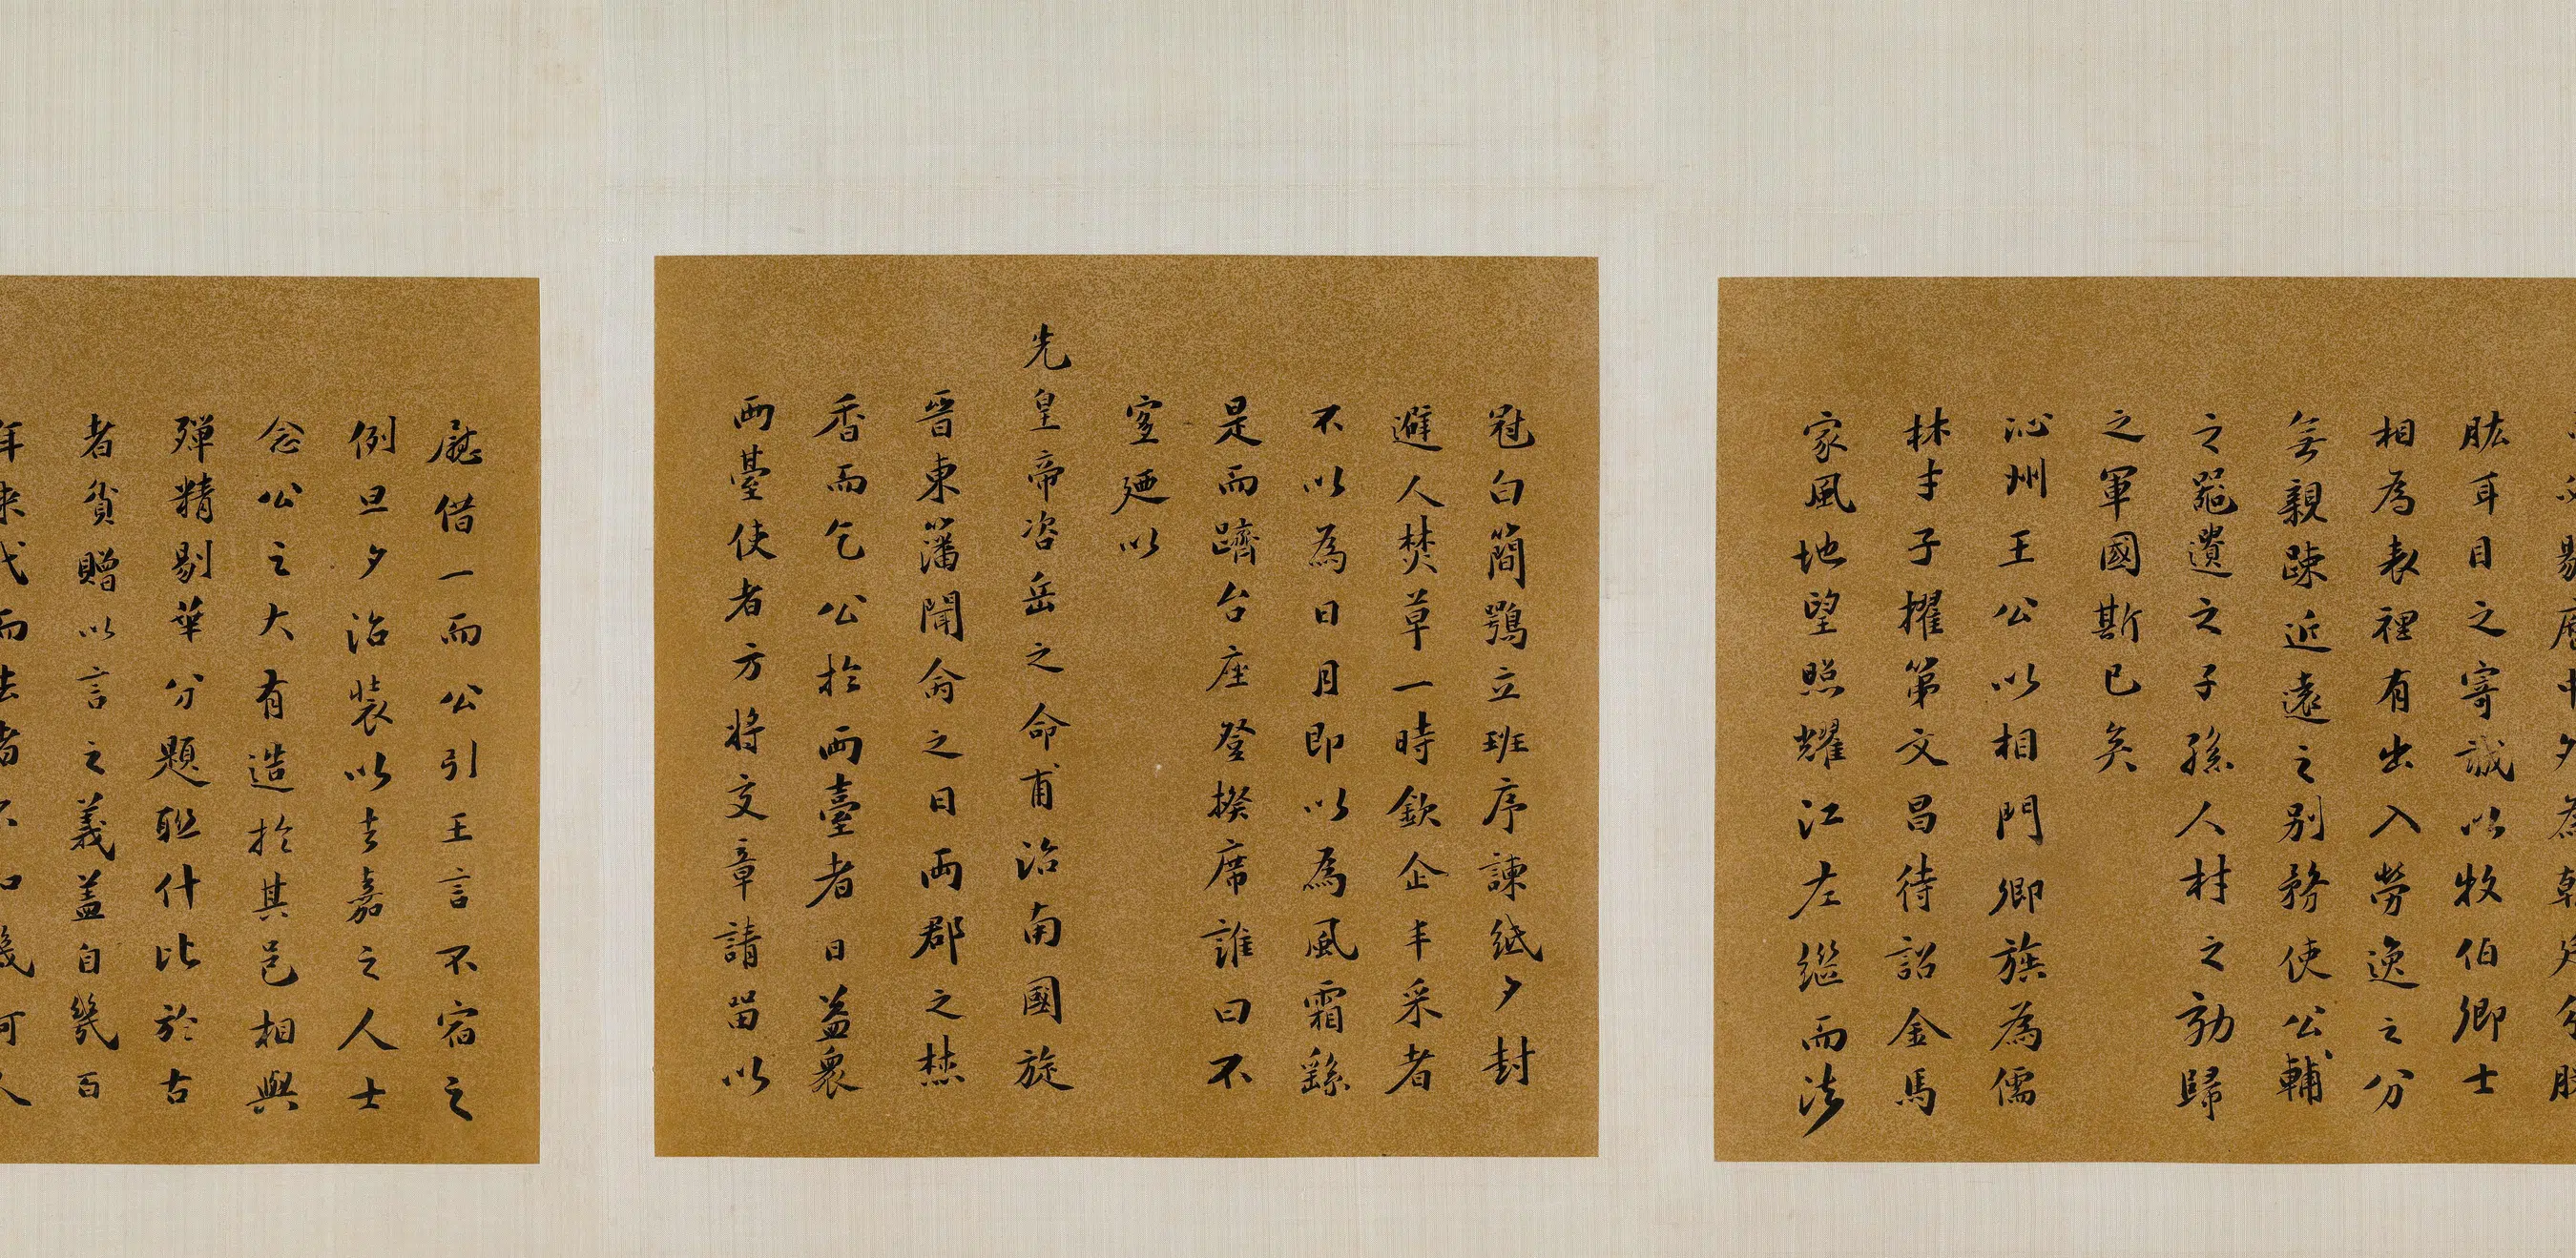 肱耳目之寄誠以牧伯卿士
相為表裡有出入勞逸之分
無親疎近遠之別務使公輔
之器遺之子孫人材之効歸
之軍國斯已矣
沁州王公以相門卿族為儒
林才子擢第文昌待詔金馬
家風地望照耀江左繼而法
冠白簡鶚立班序諫紙夕封
避人焚草一時欽企丰采者
不以為日月即以為風霜繇
是而躋台座登揆席誰曰不
宜廼以
先皇帝咨岳之命甫治南國旋
晉東藩聞命之日兩郡之焚
香而乞公於兩臺者日益衆
兩臺使者方將交章請留以
慰借一而公引王言不宿之
例旦夕治裝以去嘉之人士
念公之大有造於其邑相與
殫精剔華分題聯什比於古
者貧贈以言之義蓋自幾百
年來代而去者不知幾何人